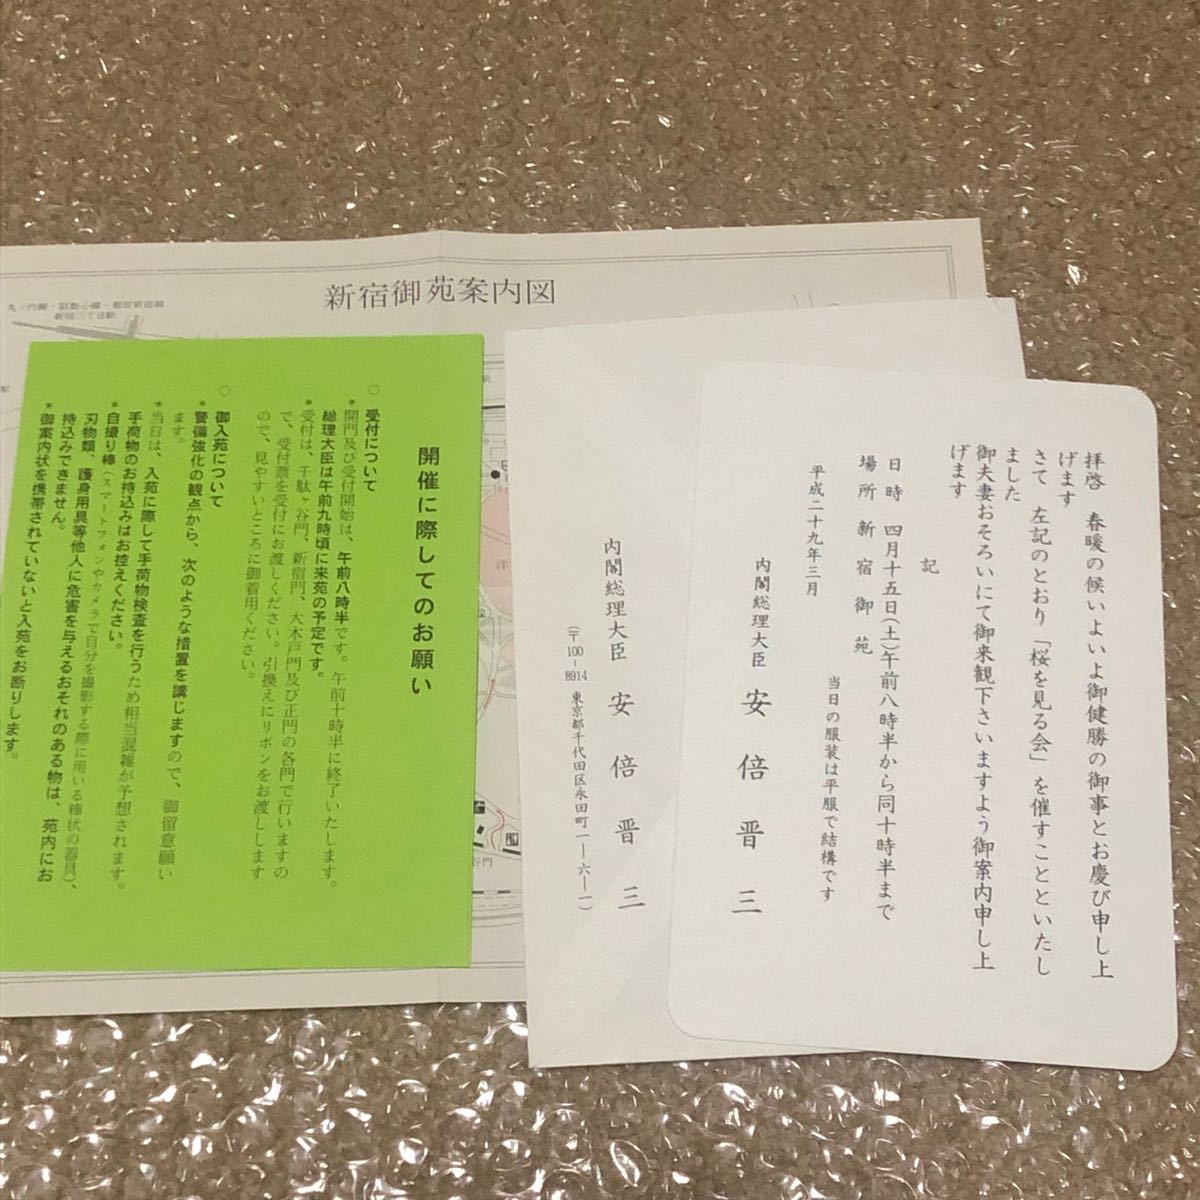 拝啓 春暖の候いよいよ御健勝の御事とお慶び申し上
げます
さて 左記のとおり「桜を見る会」を催すことといたし
ました
御夫妻おそろいにて御来観下さいますよう御案内申し上
げます
記
日時 四月十五日(土)午前八時半から同十時半まで
場所 新宿御苑
当日の服装は平服で結構です
平成二十九年三月
内閣総理大臣 安倍晋三
内閣総理大臣 安倍晋三
(〒100-8914 東京都千代田区永田町一―六―一)
新宿御苑案内図
丸ノ内線・副都心線・都営新宿線
新宿三丁目駅
開催に際してのお願い
○ 受付について
* 開門及び受付開始は、午前八時半です。午前十時半に終了いたします。
総理大臣は午前九時頃に来苑の予定です。
* 受付は、千駄ヶ谷門、新宿門、大木戸門及び正門の各門で行いますの
で、受付票を受付にお渡しください。引換えにリボンをお渡しします
ので、見やすいところに御着用ください。
○ 御入苑について
* 警備強化の観点から、次のような措置を講じますので、御留意願い
ます。
* 当日は、入苑に際して手荷物検査を行うため相当混雑が予想されます。
手荷物のお持込みはお控えください。
* 自撮り棒(スマートフォンやカメラで自分を撮影する際に用いる棒状の器具)、
刃物類、護身用具等他人に危害を与えるおそれのある物は、苑内にお
持込みできません。
* 御案内状を携帯されていないと入苑をお断りします。
洋
谷門